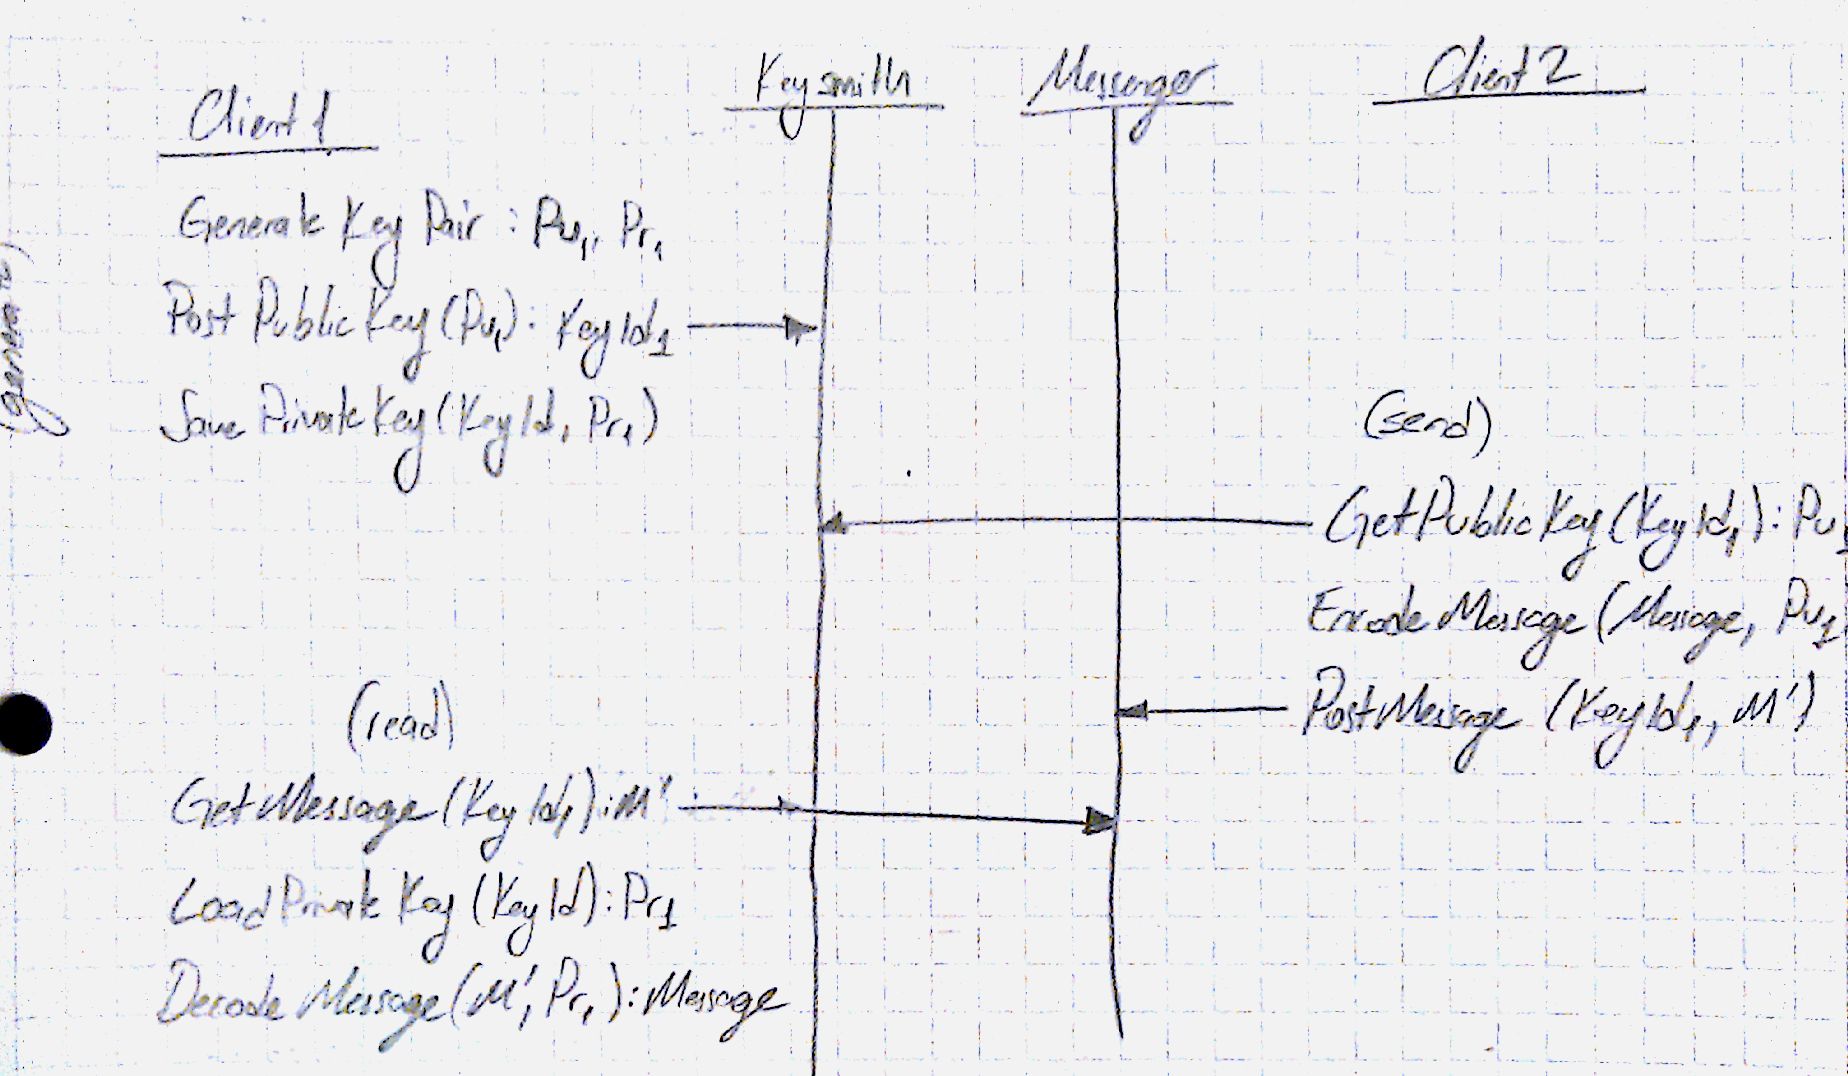 Keysmith Messenger Client 2
Client 1
Generate Key Pair : Pu₁, Pr₁
Post Public Key (Pu₁) : Key Id₁
Save Private Key (Key Id, Pr₁)
(send)
Get Public Key (Key Id₁) : Pu₁
Encode Message (Message, Pu₁
Post Message (Key Id₁, M')
(read)
Get Message (Key Id₁) : M'
Load Private Key (Key Id) : Pr₁
Decode Message (M', Pr₁) : Message